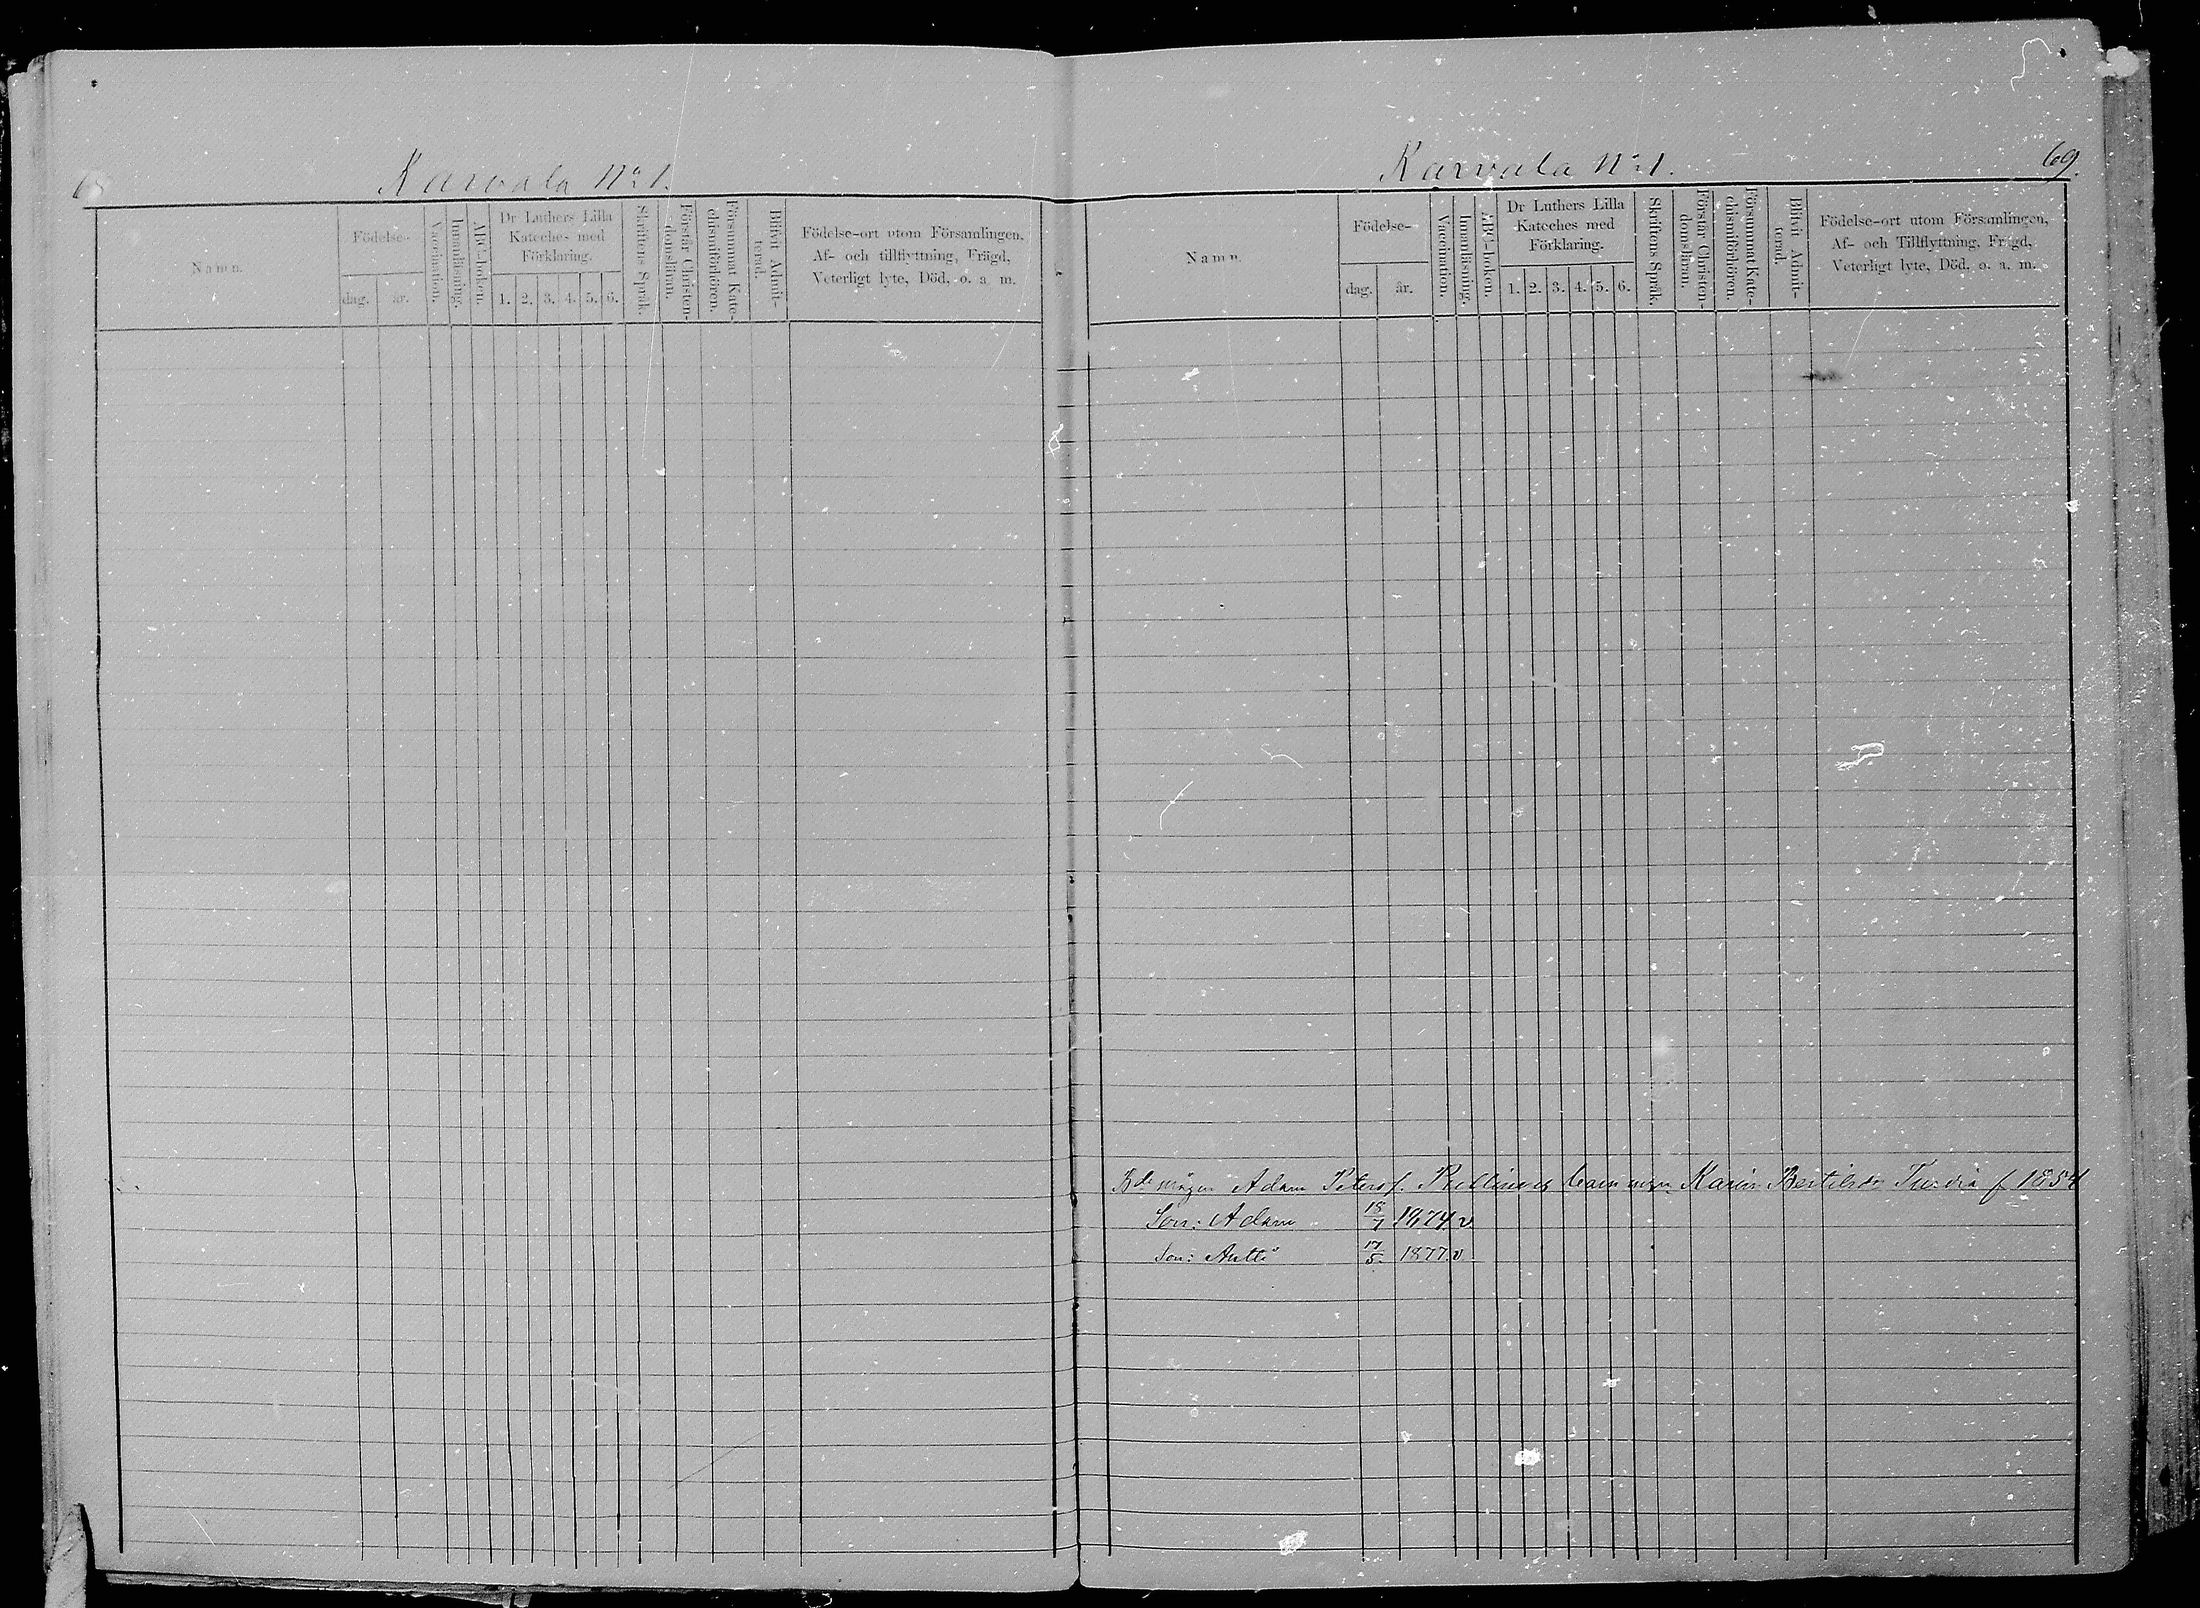 Karvala No 1.
Namn.
Födelse-
dag.
år.
Vaccination.
Innanläsning.
ABC-boken.
Dr Luthers Lilla
Kateches med
Förklaring.
1. 2. 3. 4. 5. 6.
Skriftens Språk.
Förstår Christen-
domsläran.
Försummat Kate-
chismiförhören.
Blifvit Admit-
terad.
Födelse-ort utom Församlingen,
Af- och tillflyttning, Frägd,
Veterligt lyte, Död, o. a. m.
Karvala No 1.
69.
Namn.
Födelse-
dag.
år.
Vaccination.
Innanläsning.
ABC-boken.
Dr Luthers Lilla
Kateches med
Förklaring.
1. 2. 3. 4. 5. 6.
Skriftens Språk.
Förstår Christen-
domsläran.
Försummat Kate-
chismiförhören.
Blifvit Admit-
terad.
Födelse-ort utom Församlingen,
Af- och Tillflyttning, Frägd,
Veterligt lyte, Död, o. a. m.
Adam Karin f 1854
Son: Adam 18/7 1874 v
Son: Antti 17/5 1877 v